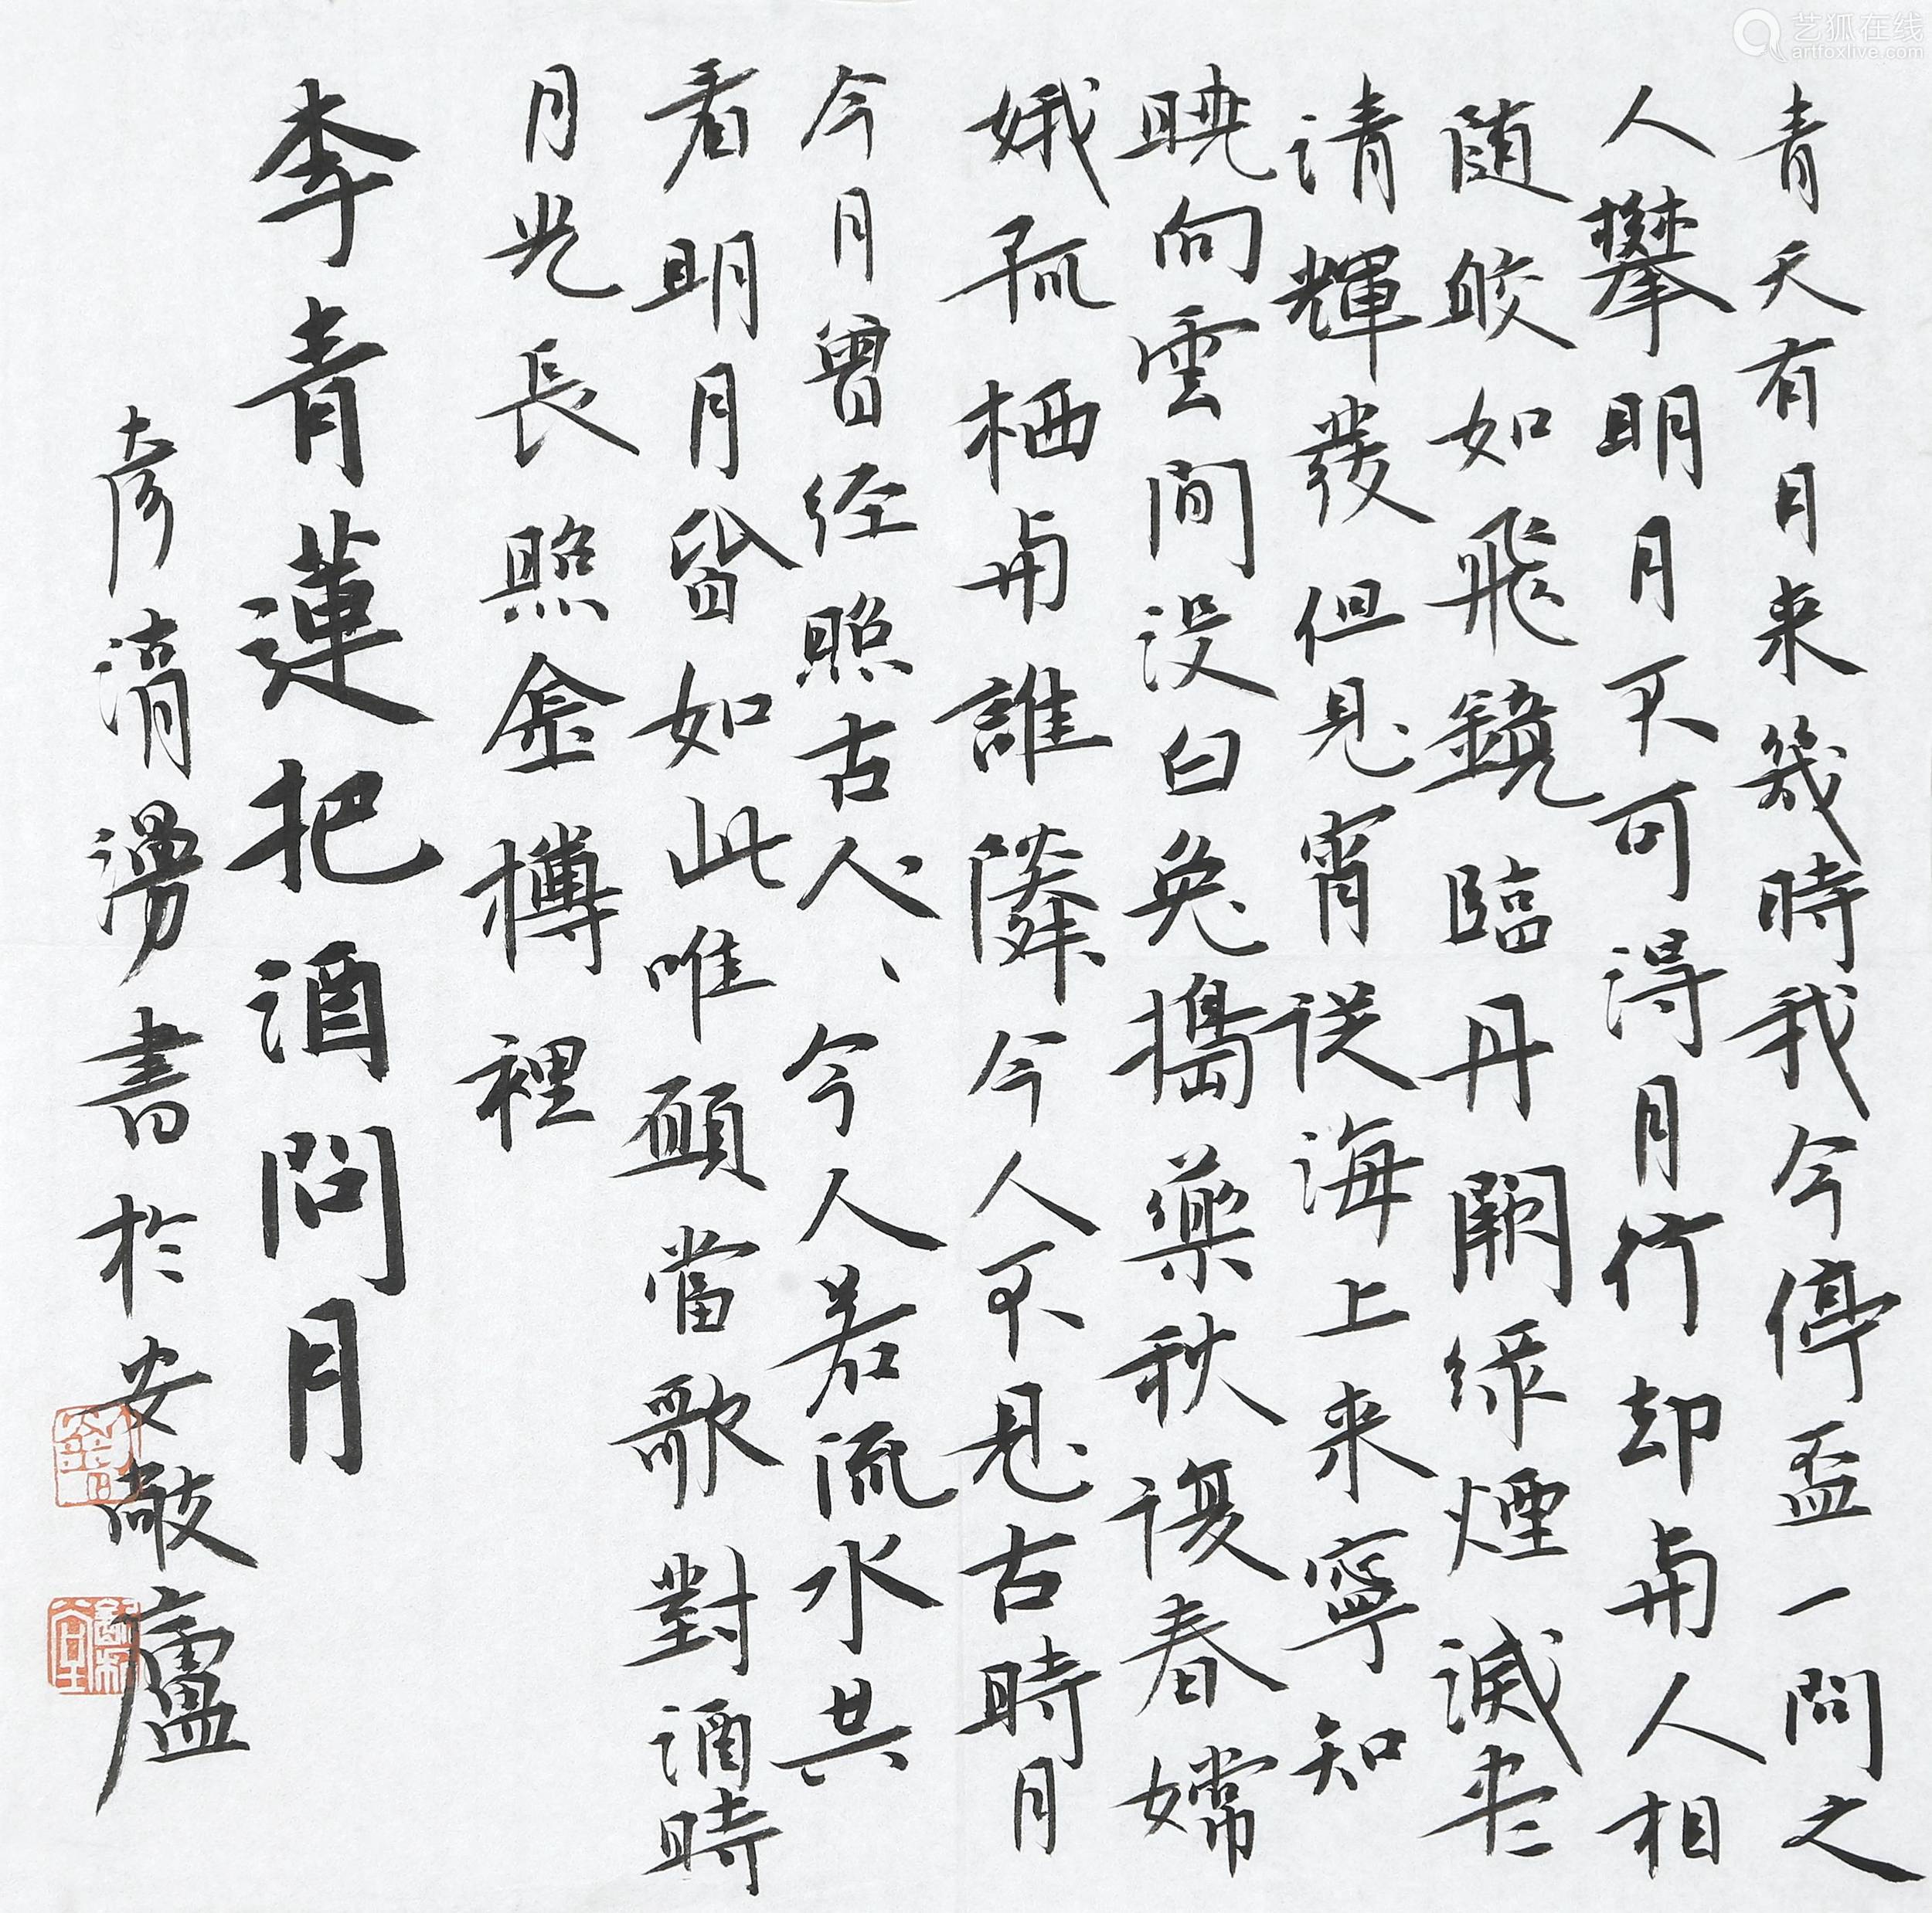 青天有月来幾時我今停盃一問之
人攀明月不可得月行却与人相
随皎如飛鏡臨丹闕绿煙滅尽
请輝發但見宵從海上来寧知
曉向雲間没白兔搗藥秋復春嫦
娥孤栖与誰隣今人不見古時月
今月曾经照古人、今人若流水共
看明月皆如此唯願當歌對酒時
月光長照金樽裡
李青蓮把酒問月
彦湑湧書於安敞廬
艺狐在线
artfoxlive.com